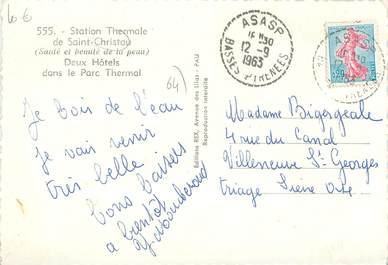 6€
555. - Station Thermale
de Saint-Christau
(Santé et beauté de la peau)
Deux Hôtels
dans le Parc Thermal
64)
ASASP
12-9
1963
BASSES PYRENEES
ASASP
0,20
Editions REX, Avenue des Lilas - PAU
Reproduction interdite
Je bois de l'eau
Je vais venir
très belle
bons baisers
a bientôt
Madame Bigorgeale
4 rue du Canal
Villeneuve St-Georges
triage Seine Oise